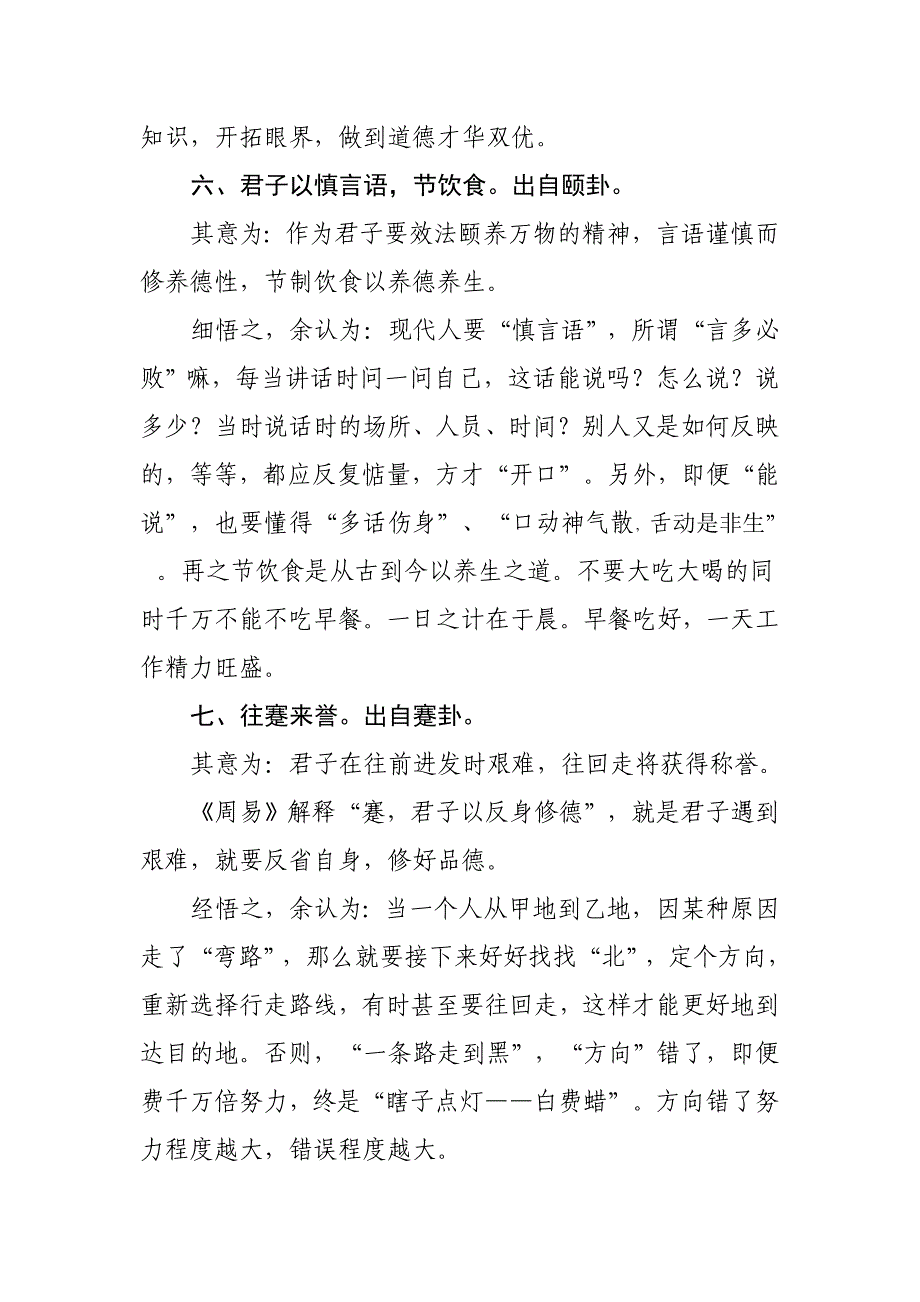 知识，开拓眼界，做到道德才华双优。
六、君子以慎言语，节饮食。出自颐卦。
其意为：作为君子要效法颐养万物的精神，言语谨慎而
修养德性，节制饮食以养德养生。
细悟之，余认为：现代人要“慎言语”，所谓“言多必
败”嘛，每当讲话时问一问自己，这话能说吗？怎么说？说
多少？当时说话时的场所、人员、时间？别人又是如何反映
的，等等，都应反复惦量，方才“开口”。另外，即便“能
说”，也要懂得“多话伤身”、“口动神气散，舌动是非生”
。再之节饮食是从古到今以养生之道。不要大吃大喝的同
时千万不能不吃早餐。一日之计在于晨。早餐吃好，一天工
作精力旺盛。
七、往蹇来誉。出自蹇卦。
其意为：君子在往前进发时艰难，往回走将获得称誉。
《周易》解释“蹇，君子以反身修德”，就是君子遇到
艰难，就要反省自身，修好品德。
经悟之，余认为：当一个人从甲地到乙地，因某种原因
走了“弯路”，那么就要接下来好好找找“北”，定个方向，
重新选择行走路线，有时甚至要往回走，这样才能更好地到
达目的地。否则，“一条路走到黑”，“方向”错了，即便
费千万倍努力，终是“瞎子点灯——白费蜡”。方向错了努
力程度越大，错误程度越大。